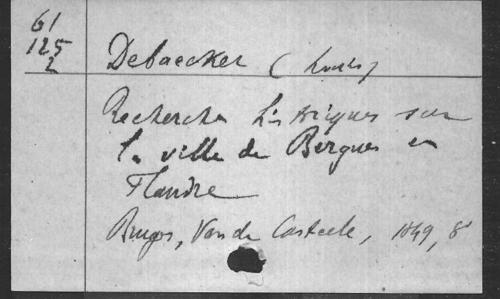 61
125
2
Debaecker (Louis)
Recherches historiques sur
la ville de Bergues en
Flandre
Bruges, Van de Casteele, 1849, 8°